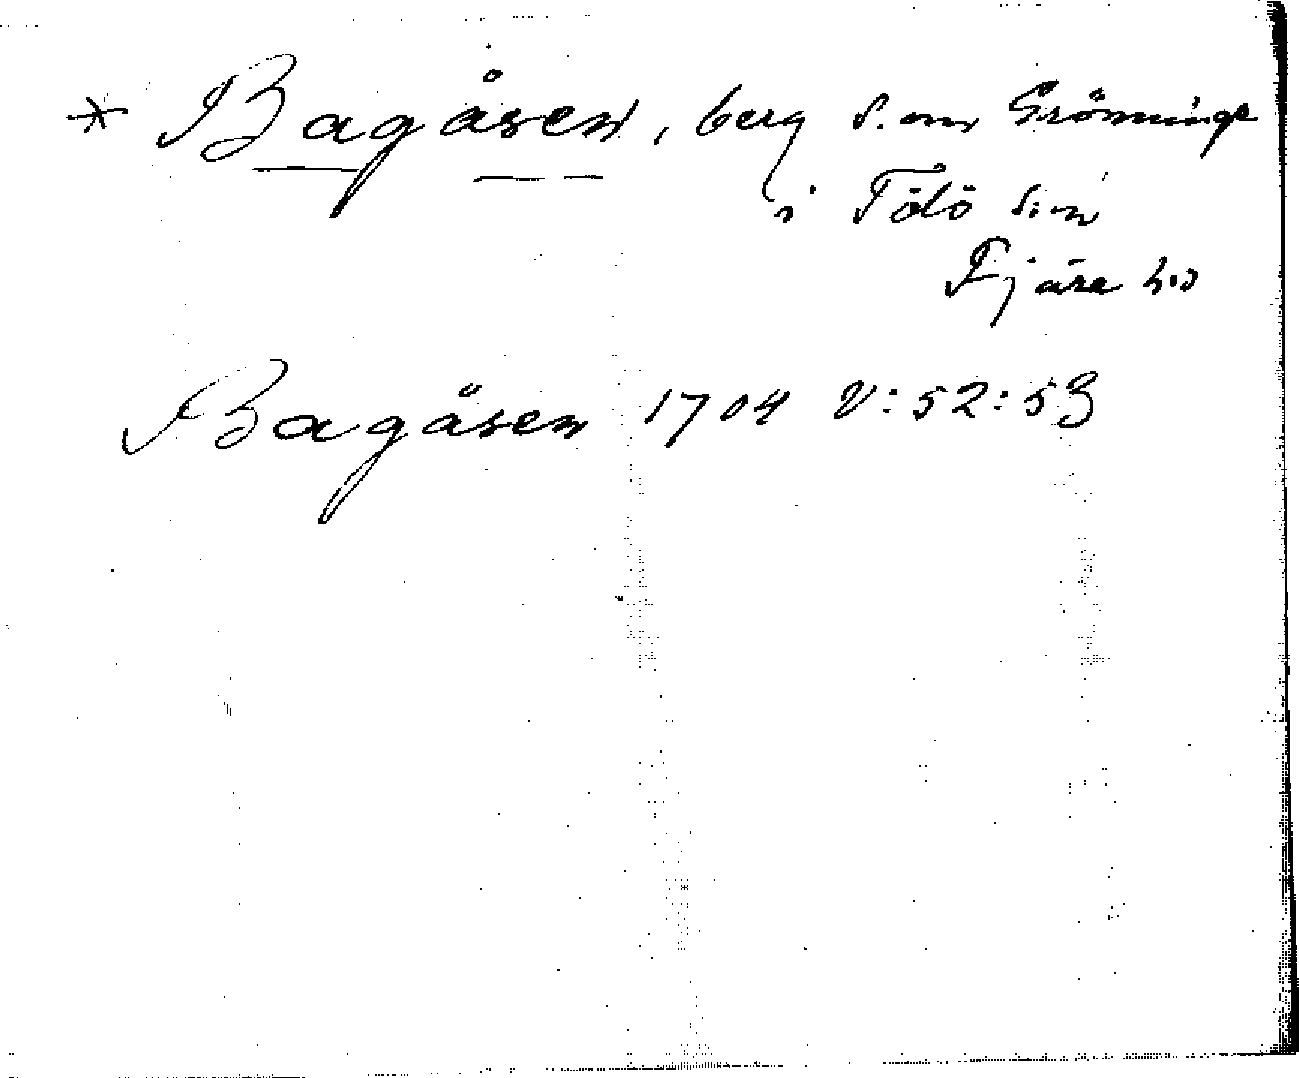 * Bagåsen, berg S. om Grönninge
i Tölö sn
Fjäre hd
Bagåsen 1704 V:52:53